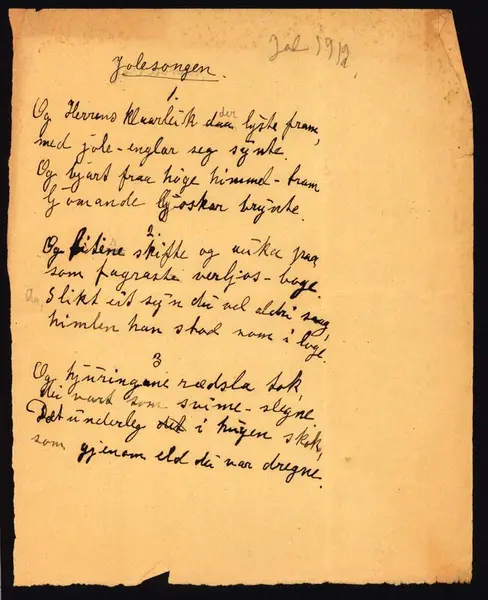 Jol 1912
Jolesongen.
1.
Og Herrens klaarleik der lyste fram,
med jole-englar seg synte.
Og bjart fraa høge himmel-bram
ljomande ljoskar brynte.
2
Og litine skifte og auka paa
som fagraste verljos-boge.
Slikt eit syn du vel aldri saag,
himlen han stod som i loge.
3
Og hjuringane rædsla tok,
dei vart som svime-slegne
Det underleg i hugen skok,
som gjenom eld dei var dregne.